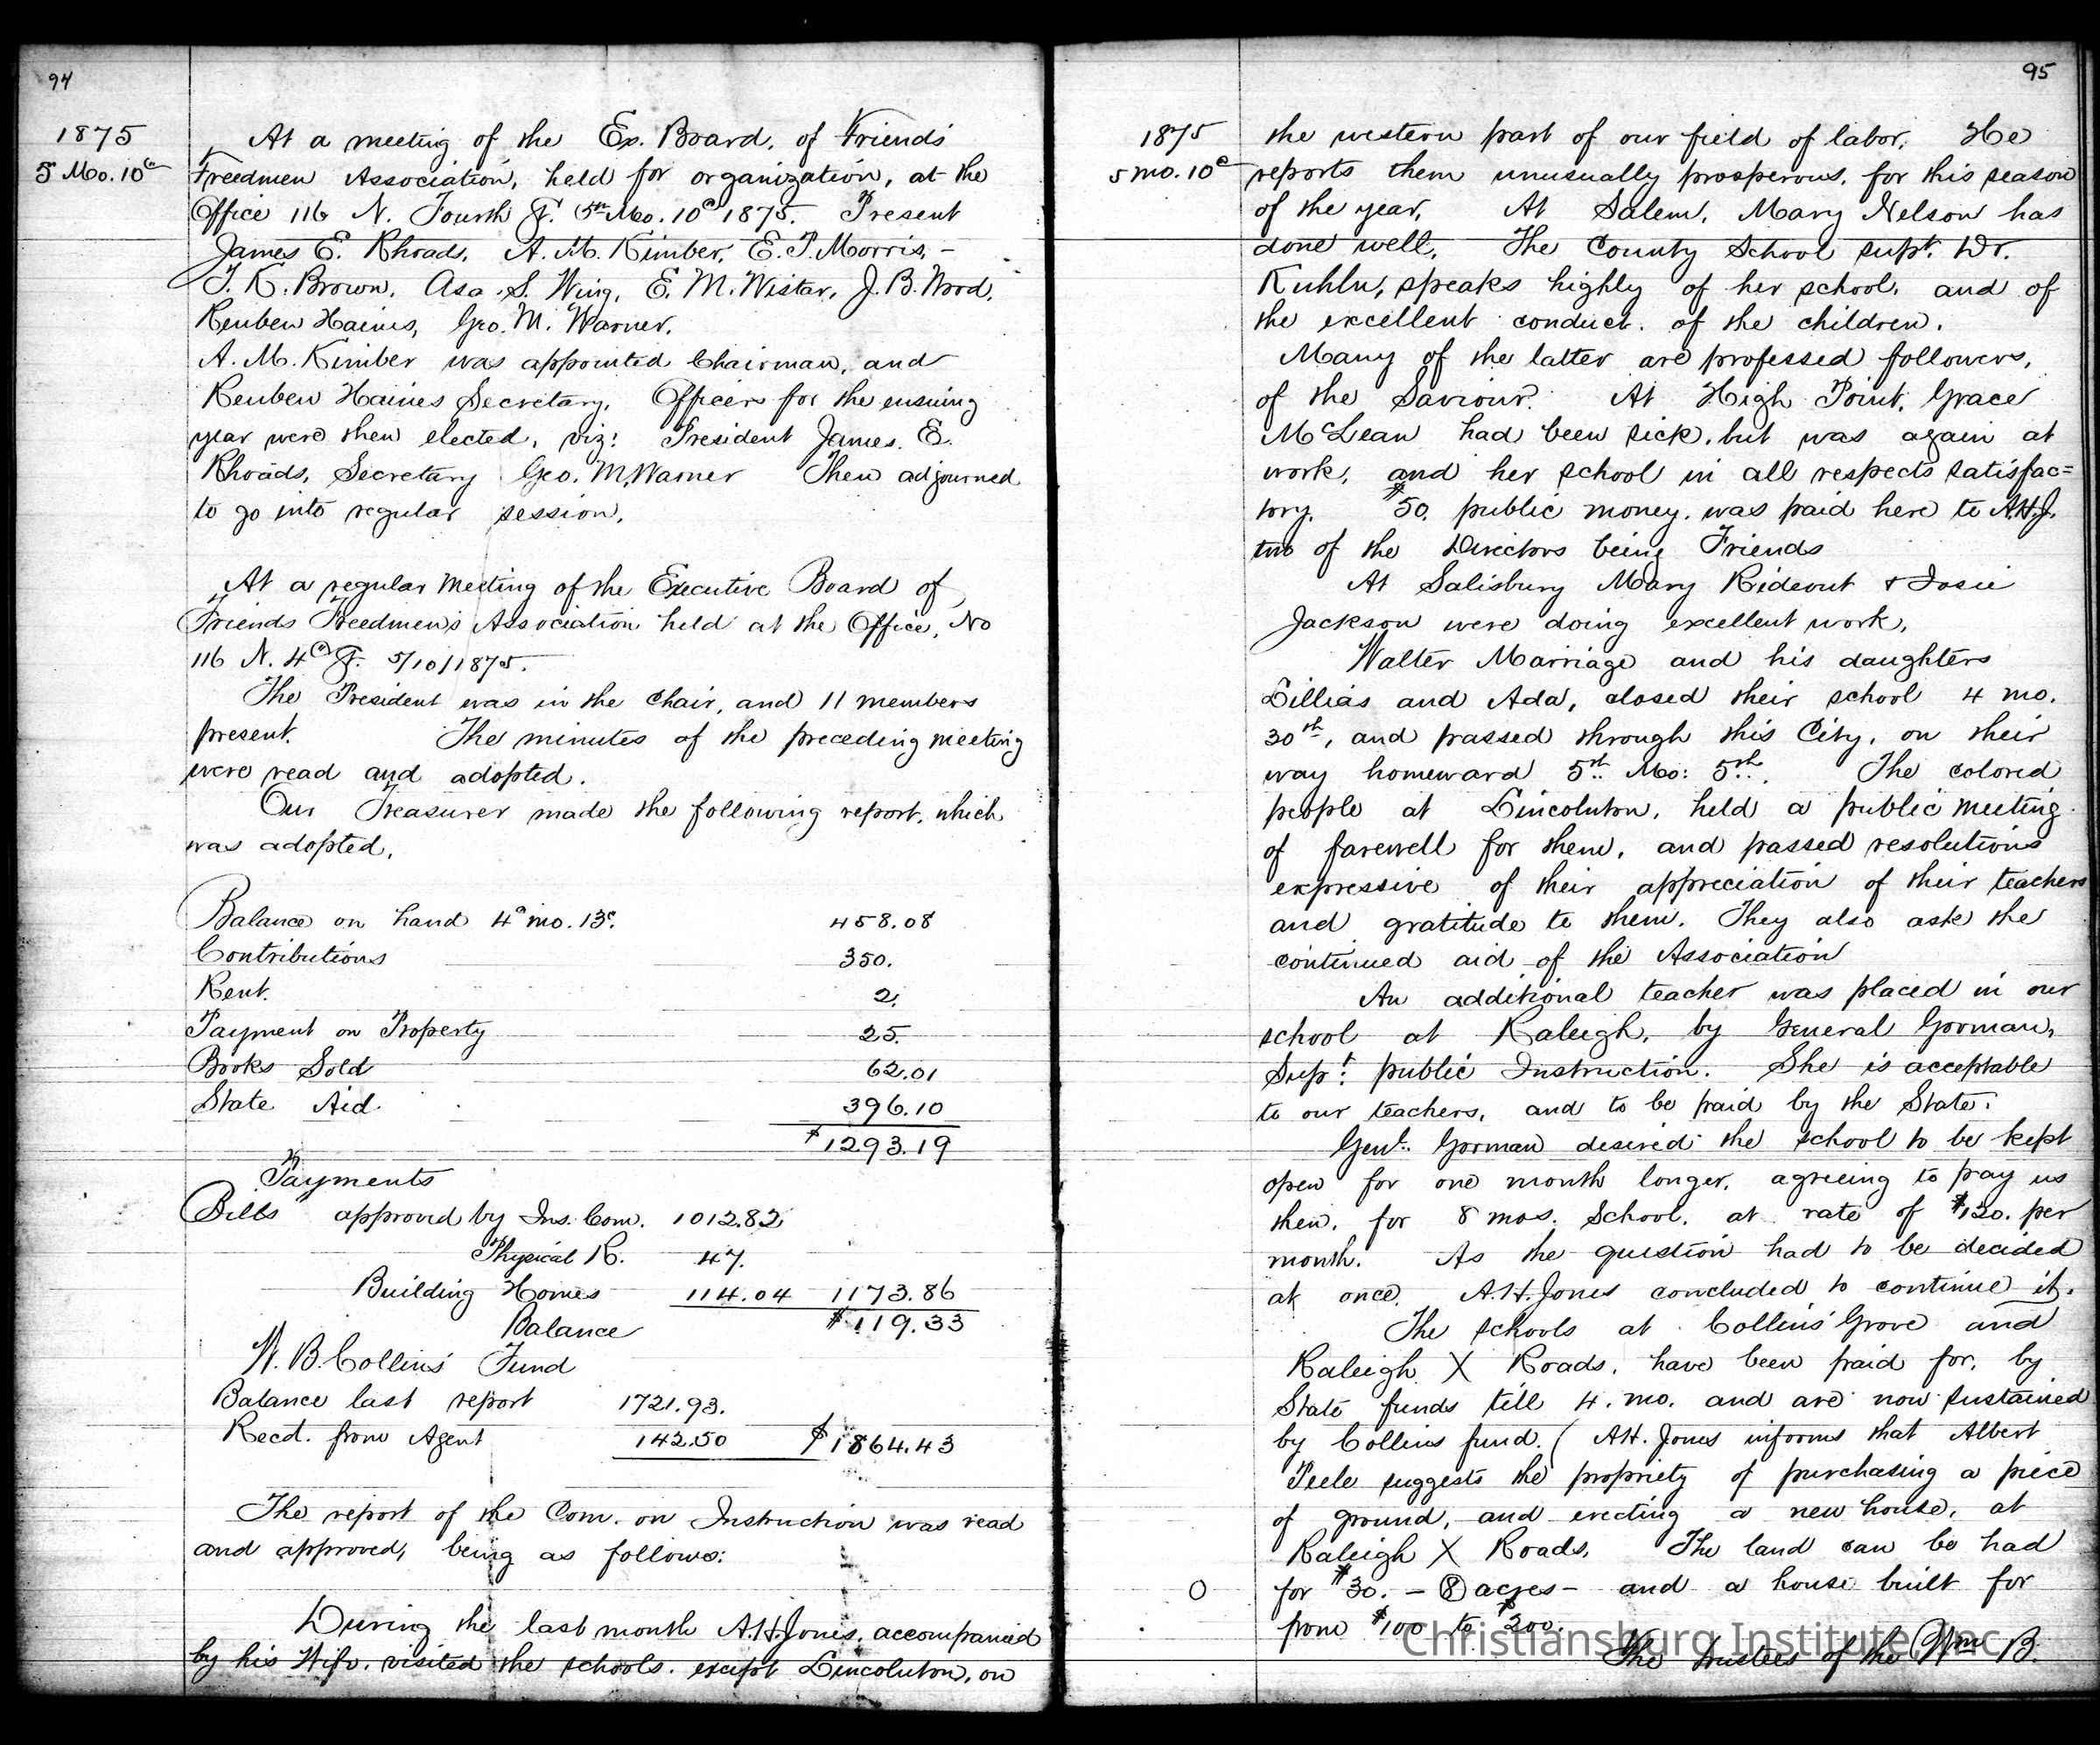 94
1875
5 Mo. 10th
At a meeting of the Ex. Board, of Friends
Freedmen Association, held for organization, at the
Office 116 N. Fourth St. 5th Mo. 10th 1875. Present
James E. Rhoads, A. M. Kimber, E. P. Morris, -
T. K. Brown, Asa S. Wing, E. M. Wistar, J. B. Wood,
Reuben Haines, Geo. M. Warner.
A. M. Kimber was appointed Chairman, and
Reuben Haines Secretary. Officers for the ensuing
year were then elected, viz: President James E.
Rhoads, Secretary Geo. M. Warner Then adjourned
to go into regular session.
At a regular Meeting of the Executive Board of
Friends Freedmen's Association held at the Office, No
116 N. 4th St. 5/10/1875.
The President was in the chair, and 11 members
present. The minutes of the preceding meeting
were read and adopted.
Our Treasurer made the following report, which
was adopted.
Balance on hand 4th mo. 13th. 458.08
Contributions 350.
Rent. 2.
Payment on Property 25.
Books Sold 62.01
State Aid 396.10
$1293.19
Payments
Bills approved by Ins. Com. 1012.82
Physical R. 47.
Building Homes 114.04 1173.86
Balance $119.33
W. B. Collins' Fund
Balance last report 1721.93.
Recd. from Agent 142.50 $1864.43
The report of the Com. on Instruction was read
and approved, being as follows:
During the last month A. H. Jones, accompanied
by his Wife, visited the schools, except Lincolnton, on
95
1875
5 mo. 10th
the western part of our field of labor. He
reports them unusually prosperous, for this season
of the year, At Salem, Mary Nelson has
done well. The County School supt. Dr.
Kuhln, speaks highly of her school, and of
the excellent conduct of the children.
Many of the latter are professed followers,
of the Saviour. At High Point, Grace
McLean had been sick, but was again at
work, and her school in all respects satisfac=
tory. $50. public money, was paid here to A.H.J.
two of the Directors being Friends
At Salisbury Mary Rideout & Josie
Jackson were doing excellent work.
Walter Marriage and his daughters
Lillias and Ada, closed their school 4 mo.
30th, and passed through this City, on their
way homeward 5th Mo: 5th. The colored
people at Lincolnton, held a public meeting
of farewell for them, and passed resolutions
expressive of their appreciation of their teachers
and gratitude to them. They also ask the
continued aid of the Association
An additional teacher was placed in our
school at Raleigh, by General Gorman,
Supt: public Instruction. She is acceptable
to our teachers, and to be paid by the State.
Genl. Gorman desired the school to be kept
open for one month longer, agreeing to pay us
then, for 8 mos. School, at rate of $120. per
month. As the question had to be decided
at once, A.H. Jones concluded to continue it.
The schools at Collins' Grove and
Raleigh X Roads, have been paid for, by
State funds till 4. mo. and are now sustained
by Collins fund. (A.H. Jones informs that Albert
Peele suggests the propriety of purchasing a piece
of ground, and erecting a new house, at
Raleigh X Roads. The land can be had
O for $30. - 8 acres - and a house built for
from $100 to $200.
The trustees of the Wm B.
Christiansburg Institute, Inc